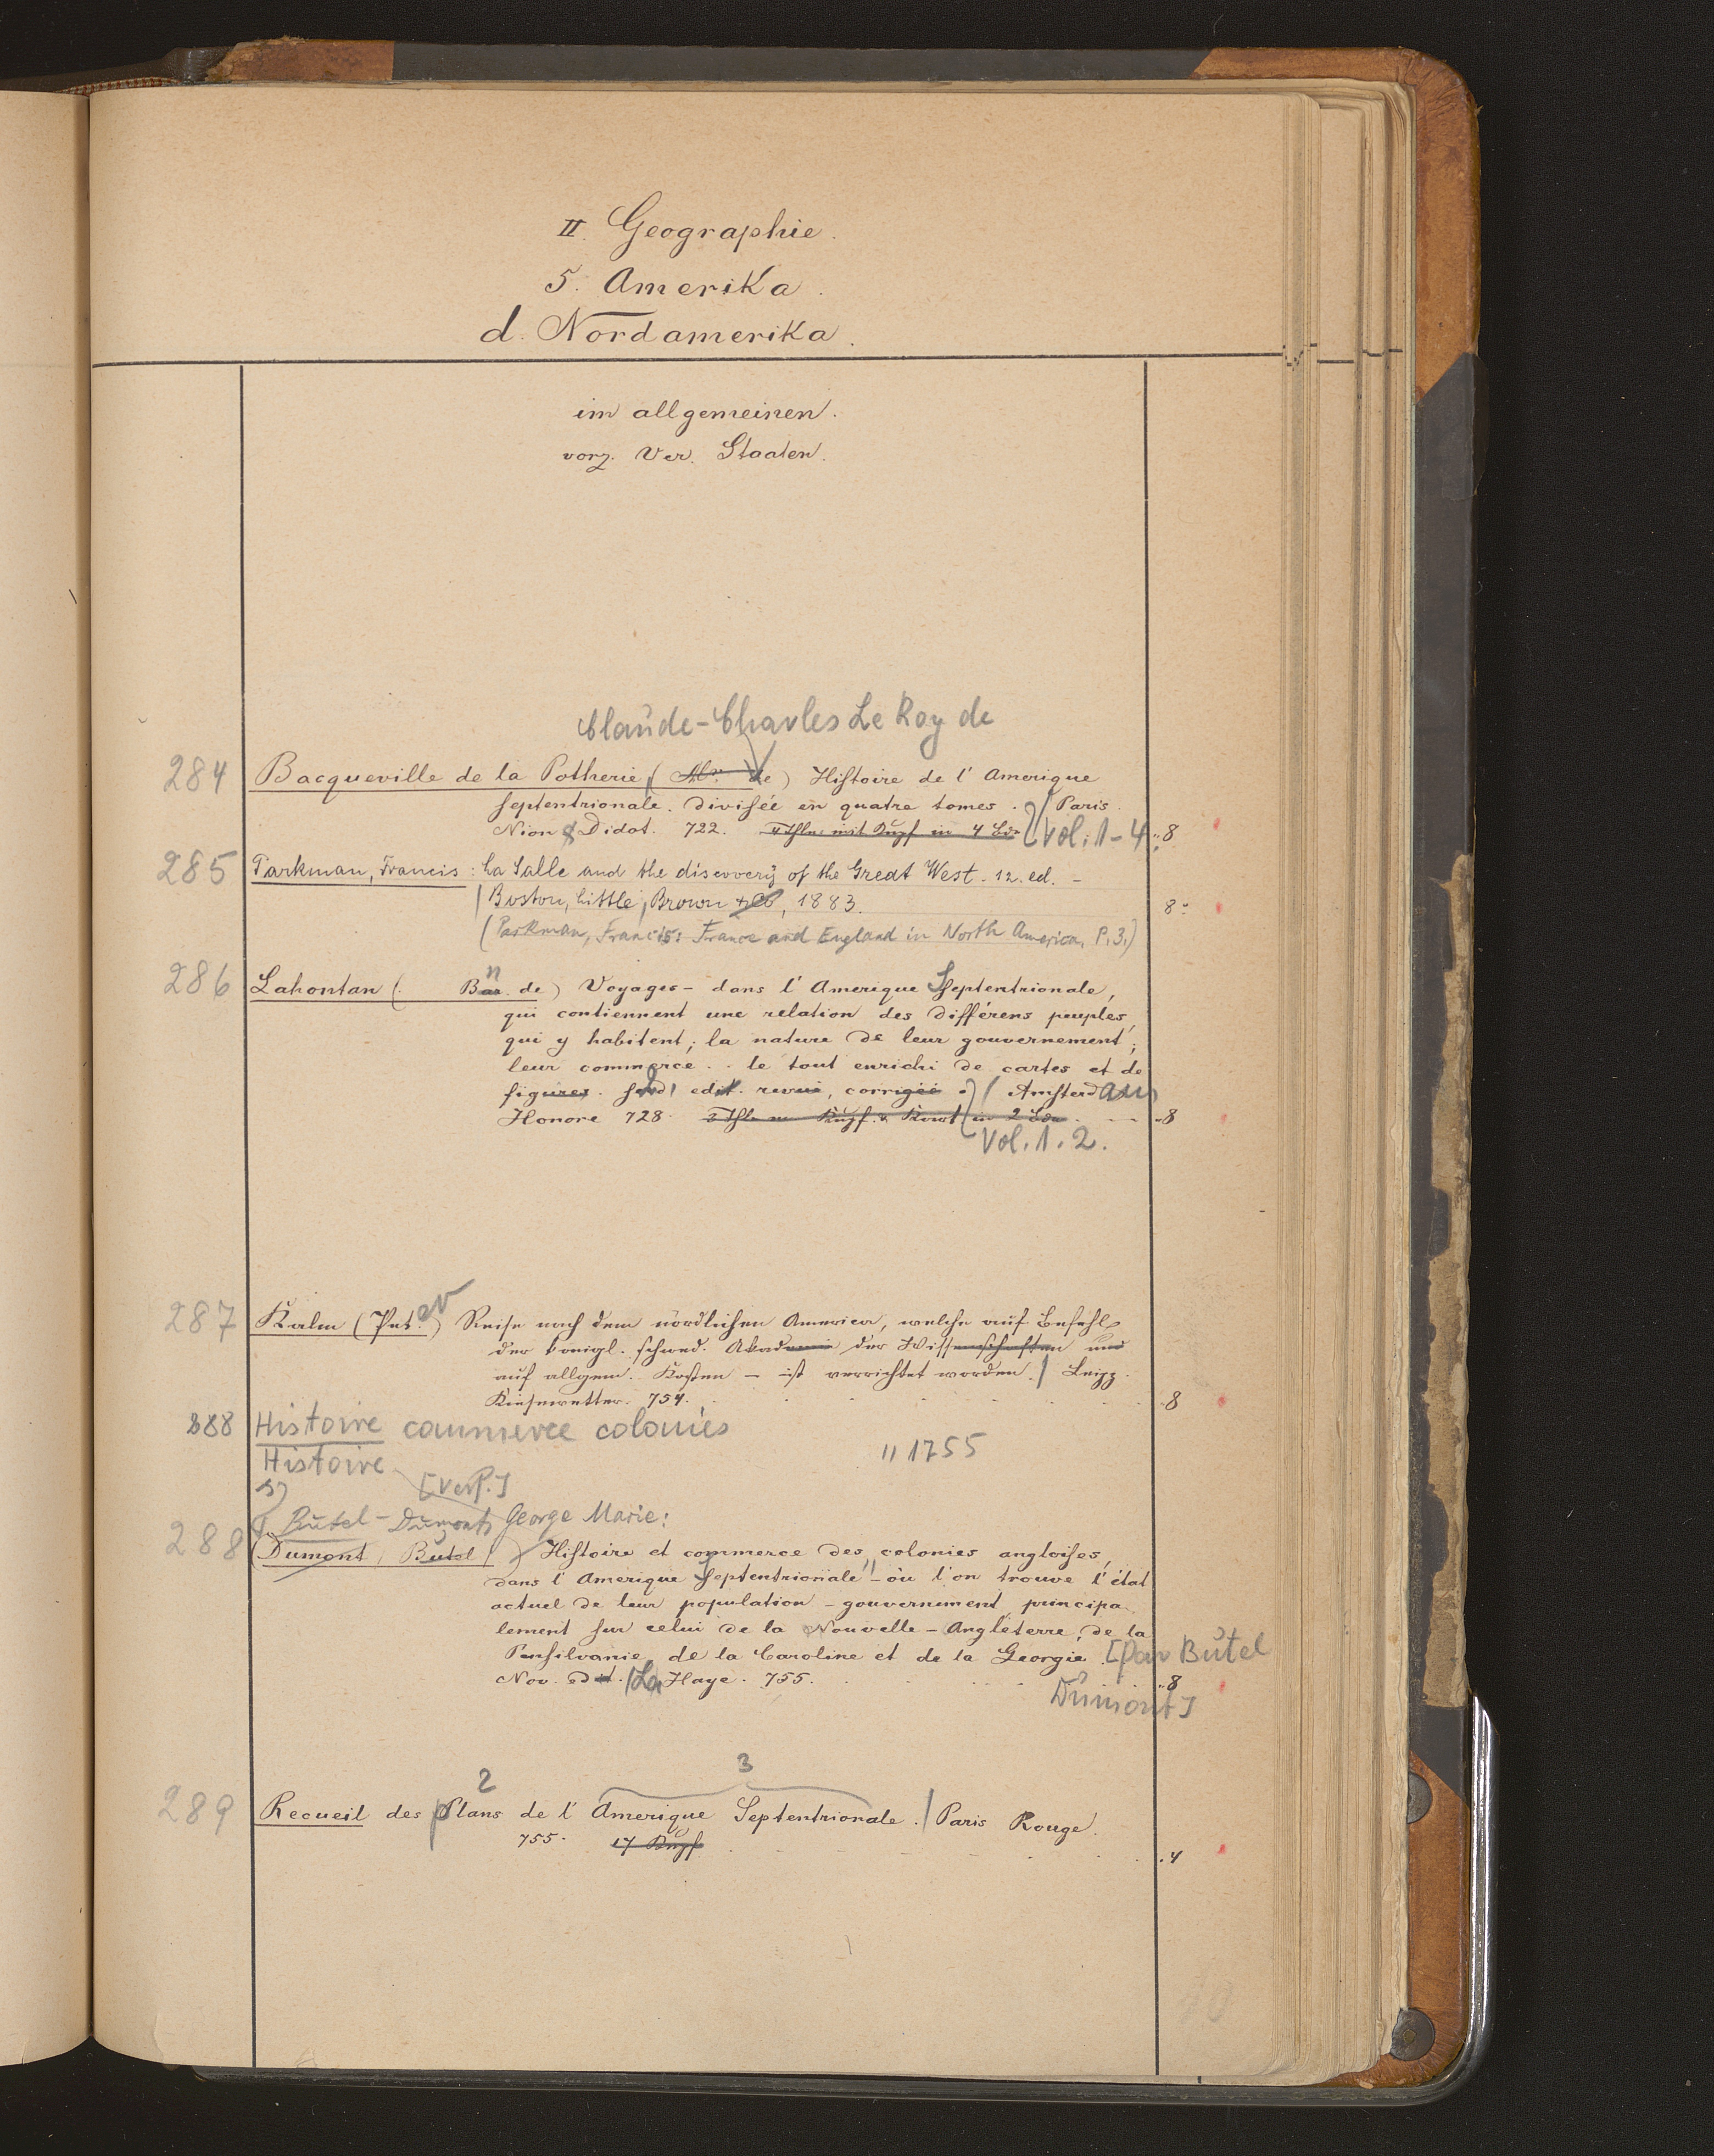 II. Geographie.
5. Amerika.
d. Nordamerika.
im allgemeinen.
vorz. Ver. Staaten.
Claude-Charles Le Roy de
284 Bacqueville de la Potherie (Mr. de) Histoire de l'Amerique
septentrionale. divisée en quatre tomes. / Paris.
Nion & Didot. 722. 4 Thle. mit Kupf in 4 Bdn Vol. 1-4 8
285 Parkman, Francis: La Salle and the discovery of the Great West. 12. ed. -
/ Boston, Little, Brown & Co, 1883. 8°
(Parkman, Francis: France and England in North America, P. 3.)
286 Lahontan (. Bar. de) Voyages - dans l'Amerique Septentrionale,
qui contiennent une relation des différens peuples,
qui y habitent; la nature de leur gouvernement;
leur commerce.. le tout enrichi de cartes et de
figures. edit. revue, corrigée / Amsterdam
Honore 728. in 2 Bdn. 8
Vol. 1. 2.
287 Kalm (Peter) Reise nach dem nördlichen America, welche auf Befehl
der königl. schwed. Akademie der Wissenschaften und
auf allgem. Kosten - ist verrichtet worden. / Leipz.
Kiesewetter. 754. 8
288 Histoire commerce colonies
" 1755
Histoire
[Verf.]
Butel-Dumont, George Marie:
288 (Dumont, Butel) Histoire et commerce des colonies angloises,
dans l'Amerique Septentrionale - où l'on trouve l'état
actuel de leur population - gouvernement, principa-
lement sur celui de la Nouvelle-Angleterre, de la
Pensilvanie, de la Caroline et de la Georgie. [par Butel
Nov. edit. / La Haye. 755. 8
Dumont]
2 3
289 Recueil des Plans de l'Amerique Septentrionale. / Paris Rouge.
755. 17 Kupf 4